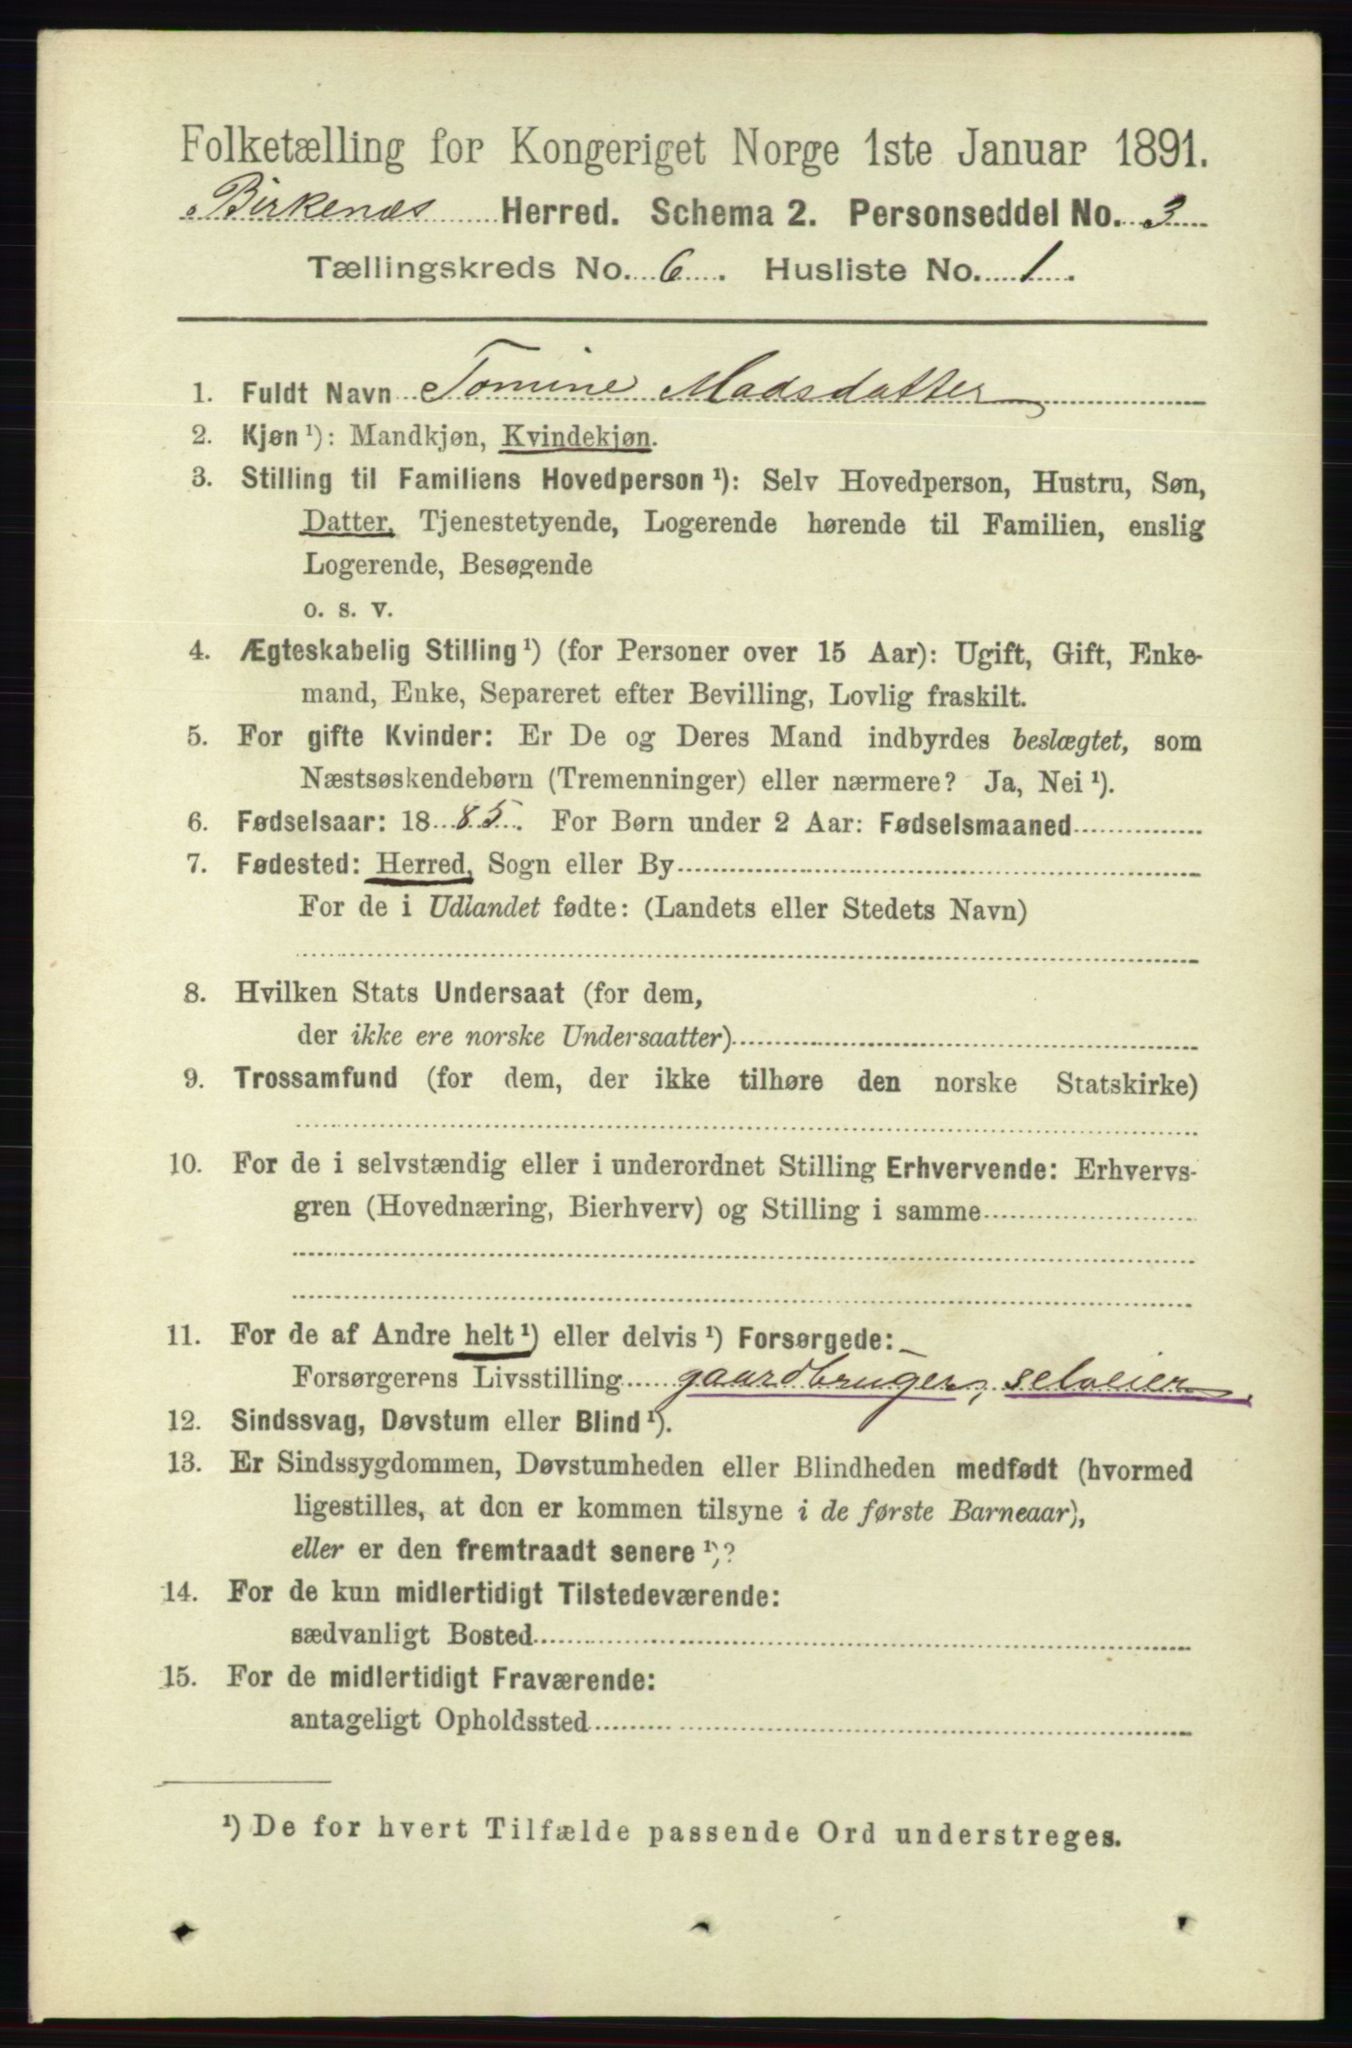 Folketælling for Kongeriget Norge 1ste Januar 1891.
Birkenæs Herred. Schema 2. Personseddel No. 3
Tællingskreds No. 6. Husliste No. 1.
1. Fuldt Navn Tomine Madsdatter
2. Kjøn ¹): Mandkjøn, Kvindekjøn.
3. Stilling til Familiens Hovedperson ¹): Selv Hovedperson, Hustru, Søn,
Datter, Tjenestetyende, Logerende hørende til Familien, enslig
Logerende, Besøgende
o. s. v.
4. Ægteskabelig Stilling ¹) (for Personer over 15 Aar): Ugift, Gift, Enke-
mand, Enke, Separeret efter Bevilling, Lovlig fraskilt.
5. For gifte Kvinder: Er De og Deres Mand indbyrdes beslægtet, som
Næstsøskendebørn (Tremenninger) eller nærmere? Ja, Nei ¹).
6. Fødselsaar: 1885. For Børn under 2 Aar: Fødselsmaaned
7. Fødested: Herred, Sogn eller By
For de i Udlandet fødte: (Landets eller Stedets Navn)
8. Hvilken Stats Undersaat (for dem,
der ikke ere norske Undersaatter)
9. Trossamfund (for dem, der ikke tilhøre den norske Statskirke)
10. For de i selvstændig eller i underordnet Stilling Erhvervende: Erhvervs-
gren (Hovednæring, Bierhverv) og Stilling i samme
11. For de af Andre helt ¹) eller delvis ¹) Forsørgede:
Forsørgerens Livsstilling gaardbruger, selveier
12. Sindssvag, Døvstum eller Blind ¹).
13. Er Sindssygdommen, Døvstumheden eller Blindheden medfødt (hvormed
ligestilles, at den er kommen tilsyne i de første Barneaar),
eller er den fremtraadt senere ¹)?
14. For de kun midlertidigt Tilstedeværende:
sædvanligt Bosted
15. For de midlertidigt Fraværende:
antageligt Opholdssted
¹) De for hvert Tilfælde passende Ord understreges.